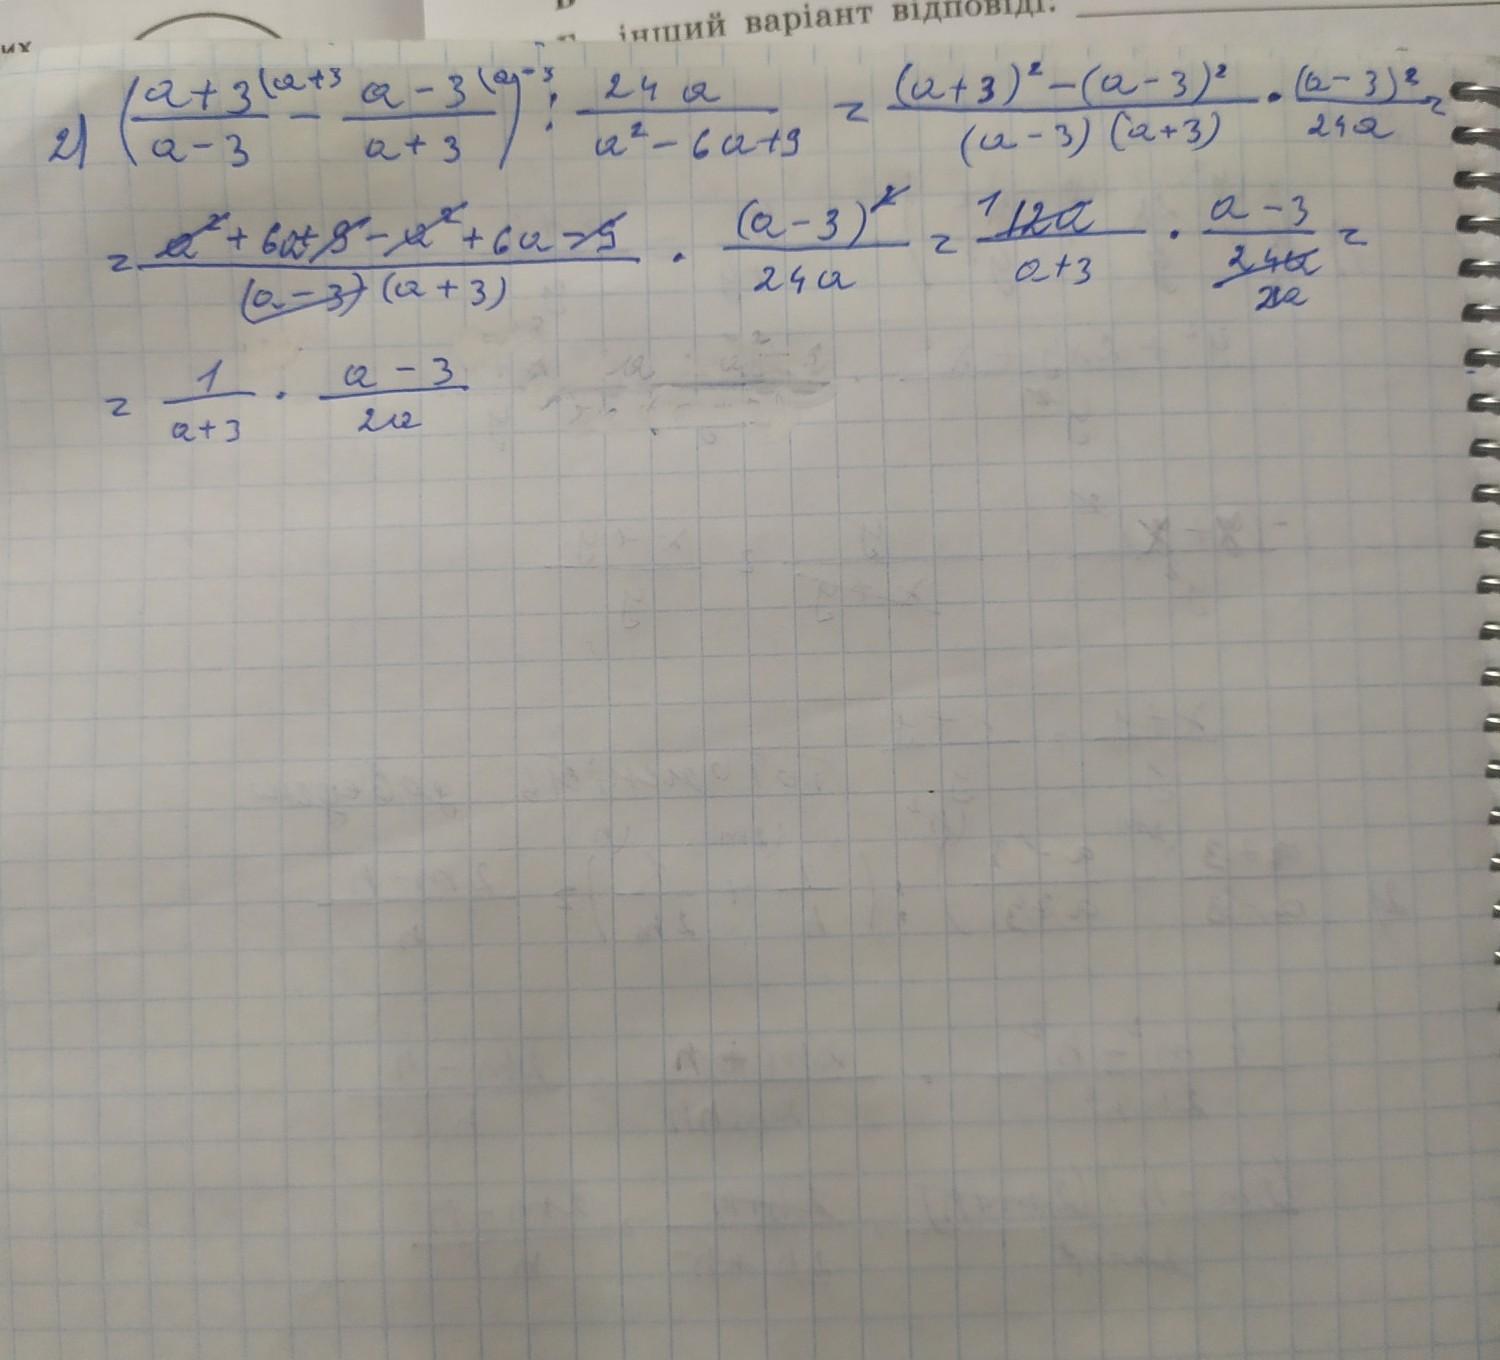 их
інший варіант відповіді:
2) ((a+3)/(a-3) (a+3 - (a-3)/(a+3) (a-3) : 24a/(a²-6a+9) = ((a+3)²-(a-3)²)/((a-3)(a+3)) · (a-3)²/24a =
= (a²+6a+9-a²+6a-9)/((a-3)(a+3)) · (a-3)²/24a = 1 12a/(a+3) · (a-3)/(24a 2a) =
= 1/(a+3) · (a-3)/2a